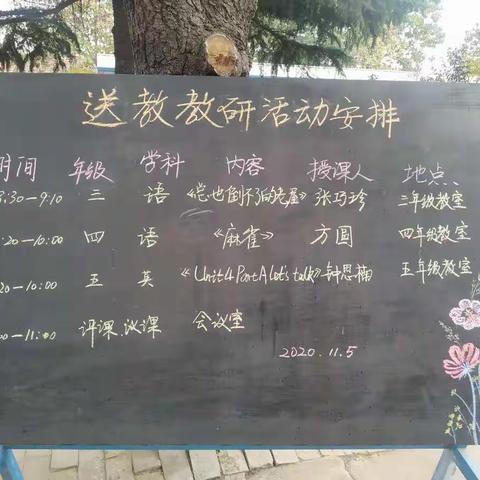 送教教研活动安排
时间 年级 学科 内容 授课人 地点
8:30—9:10 三 语 《总也倒不了的老屋》 张巧珍 三年级教室
:20—10:00 四 语 《麻雀》 方圆 四年级教室
:20—10:00 五 英 《Unit4 PartA let's talk》 钟恩楠 五年级教室
:00—11:00 评课、议课 会议室
2020.11.5